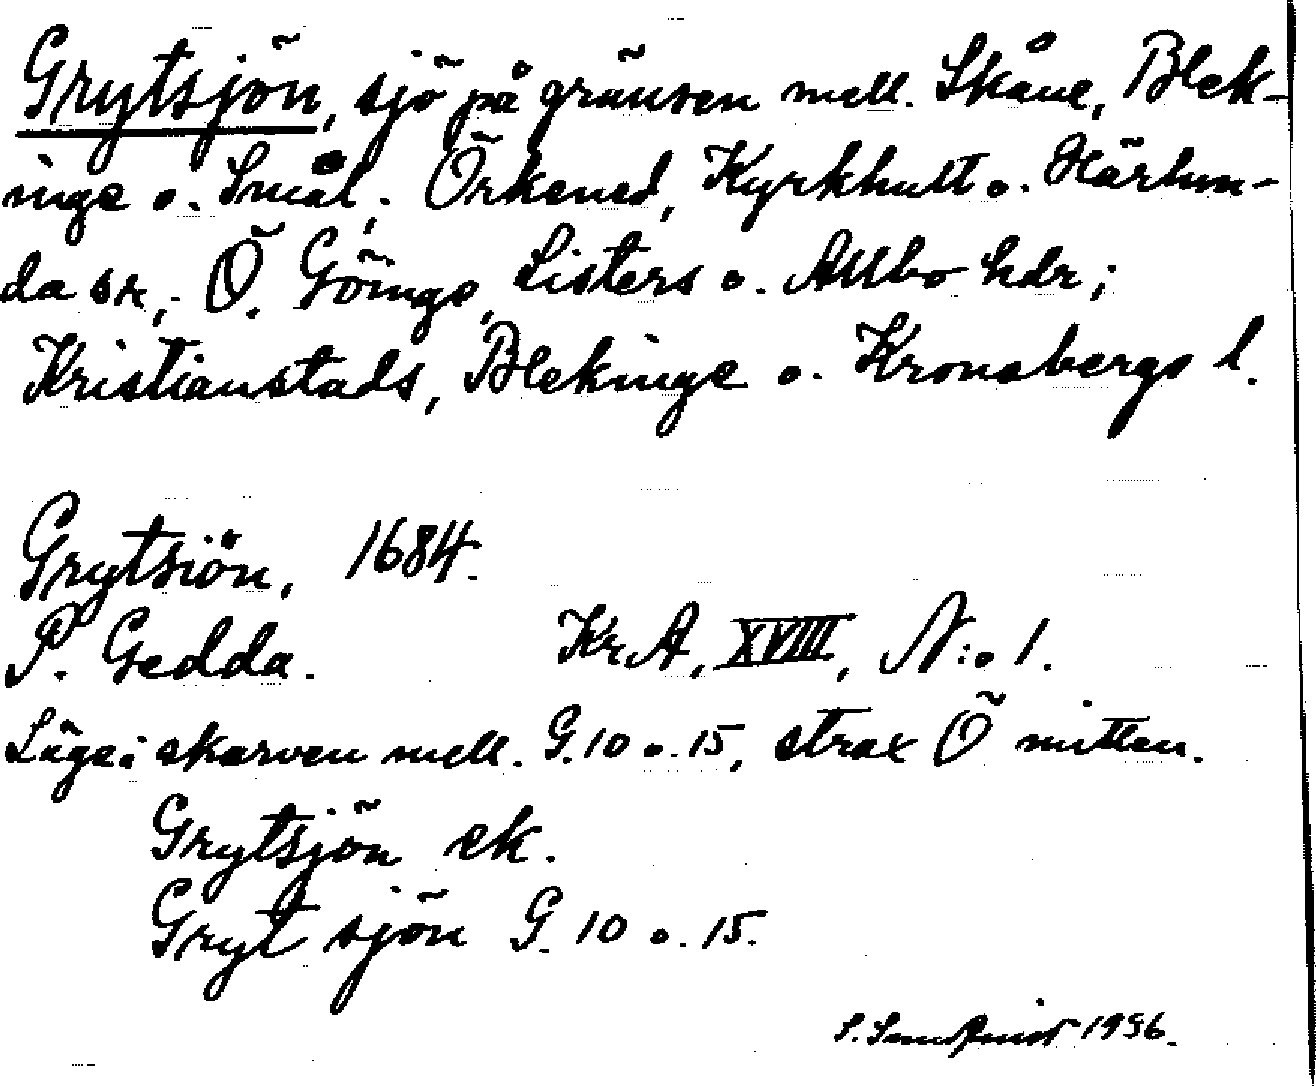 Grytsjön, sjö på gränsen mell. Skåne, Blek-
inge o. Smål. Örkened, Kyrkhult o. Härlun-
da sn, Ö. Göinge, Listers o. Allbo hdr;
Kristianstads, Blekinge o. Kronobergs l.
Grytsiön, 1684.
P. Gedda. KrA, XVIII, N:o 1.
Läge i skarven mell. G. 10 o. 15, strax Ö mitten.
Grytsjön ek.
Gryt sjön G. 10 o. 15.
S. 1956.